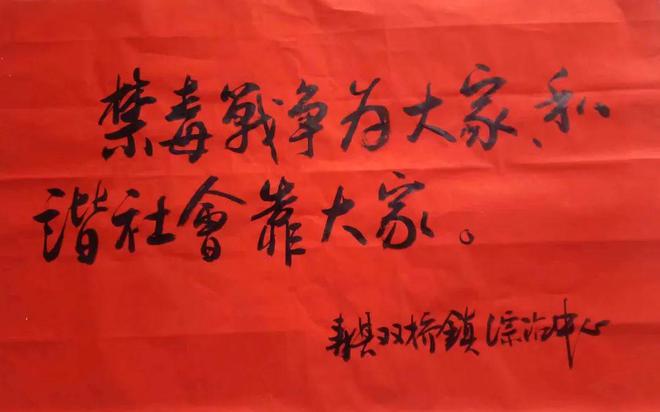 禁毒戰争为大家、和
諧社會靠大家。
寿县双桥鎮综治中心